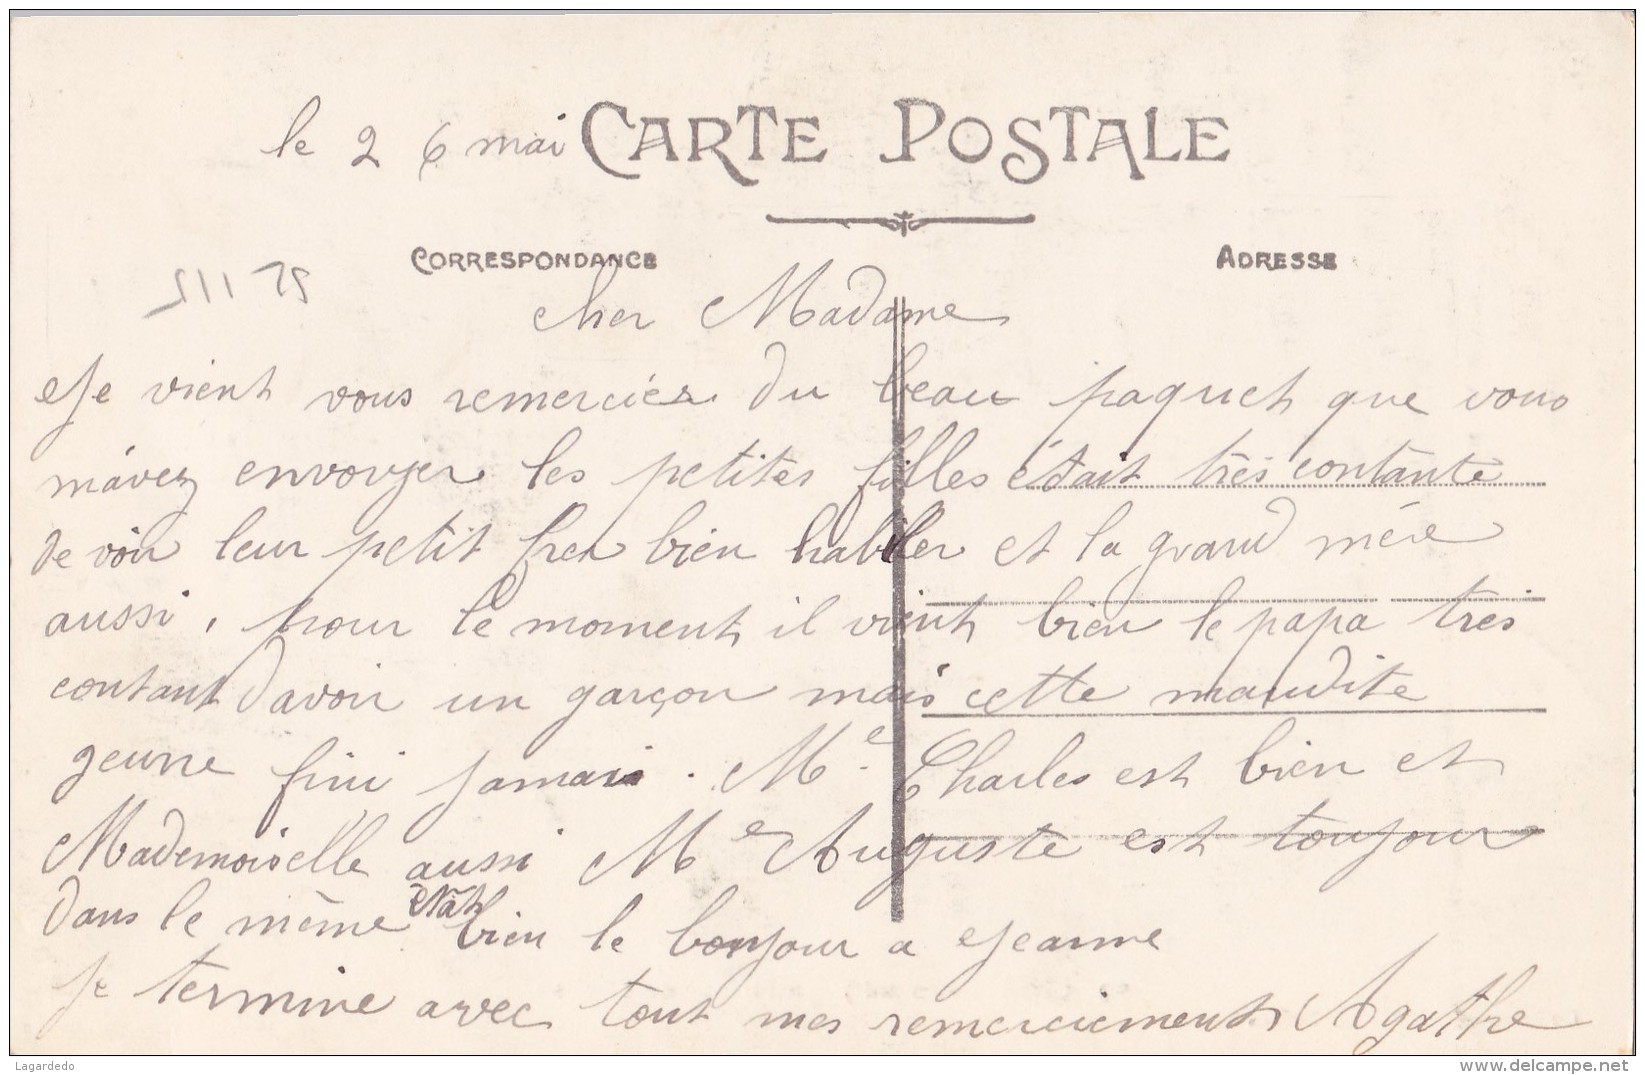 le 26 mai CARTE POSTALE
CORRESPONDANCE
ADRESSE
cher Madame
Je vient vous remercier du beau paquet que vous
m'avez envoyer les petites filles était très contante
de voir leur petit frer bien habiller et la grand mére
aussi, pour le moment il vient bien le papa très
contant d'avoir un garçon mais cette maudite
geurre fini jamais. Me. Charles est bien et
Mademoiselle aussi Me Auguste est toujour
dans le même état bien le bonjour a Jeanne
Je termine avec tout mes remerciements Agathe
Lagardedo
www.delcampe.net